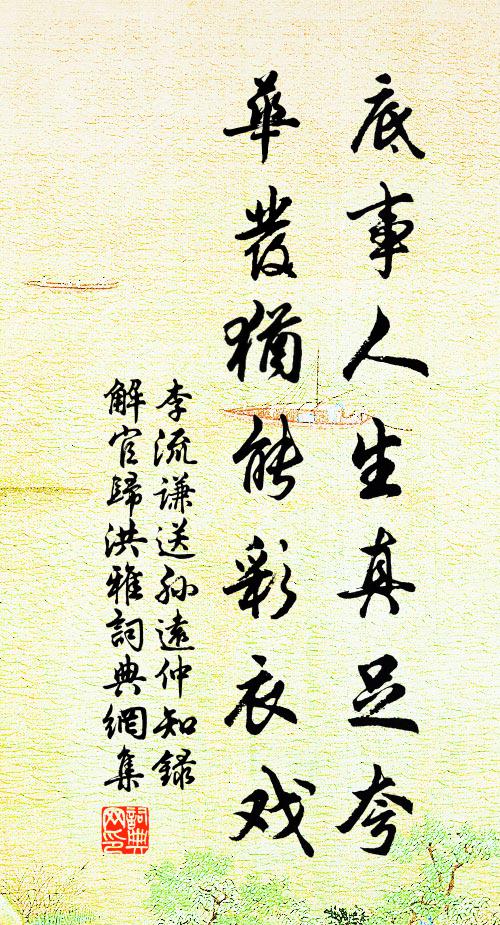 底事人生真足夸
華發猶能彩衣戏
李流谦送孙遠仲知録
解官歸洪雅詞典網集
詞典
网印